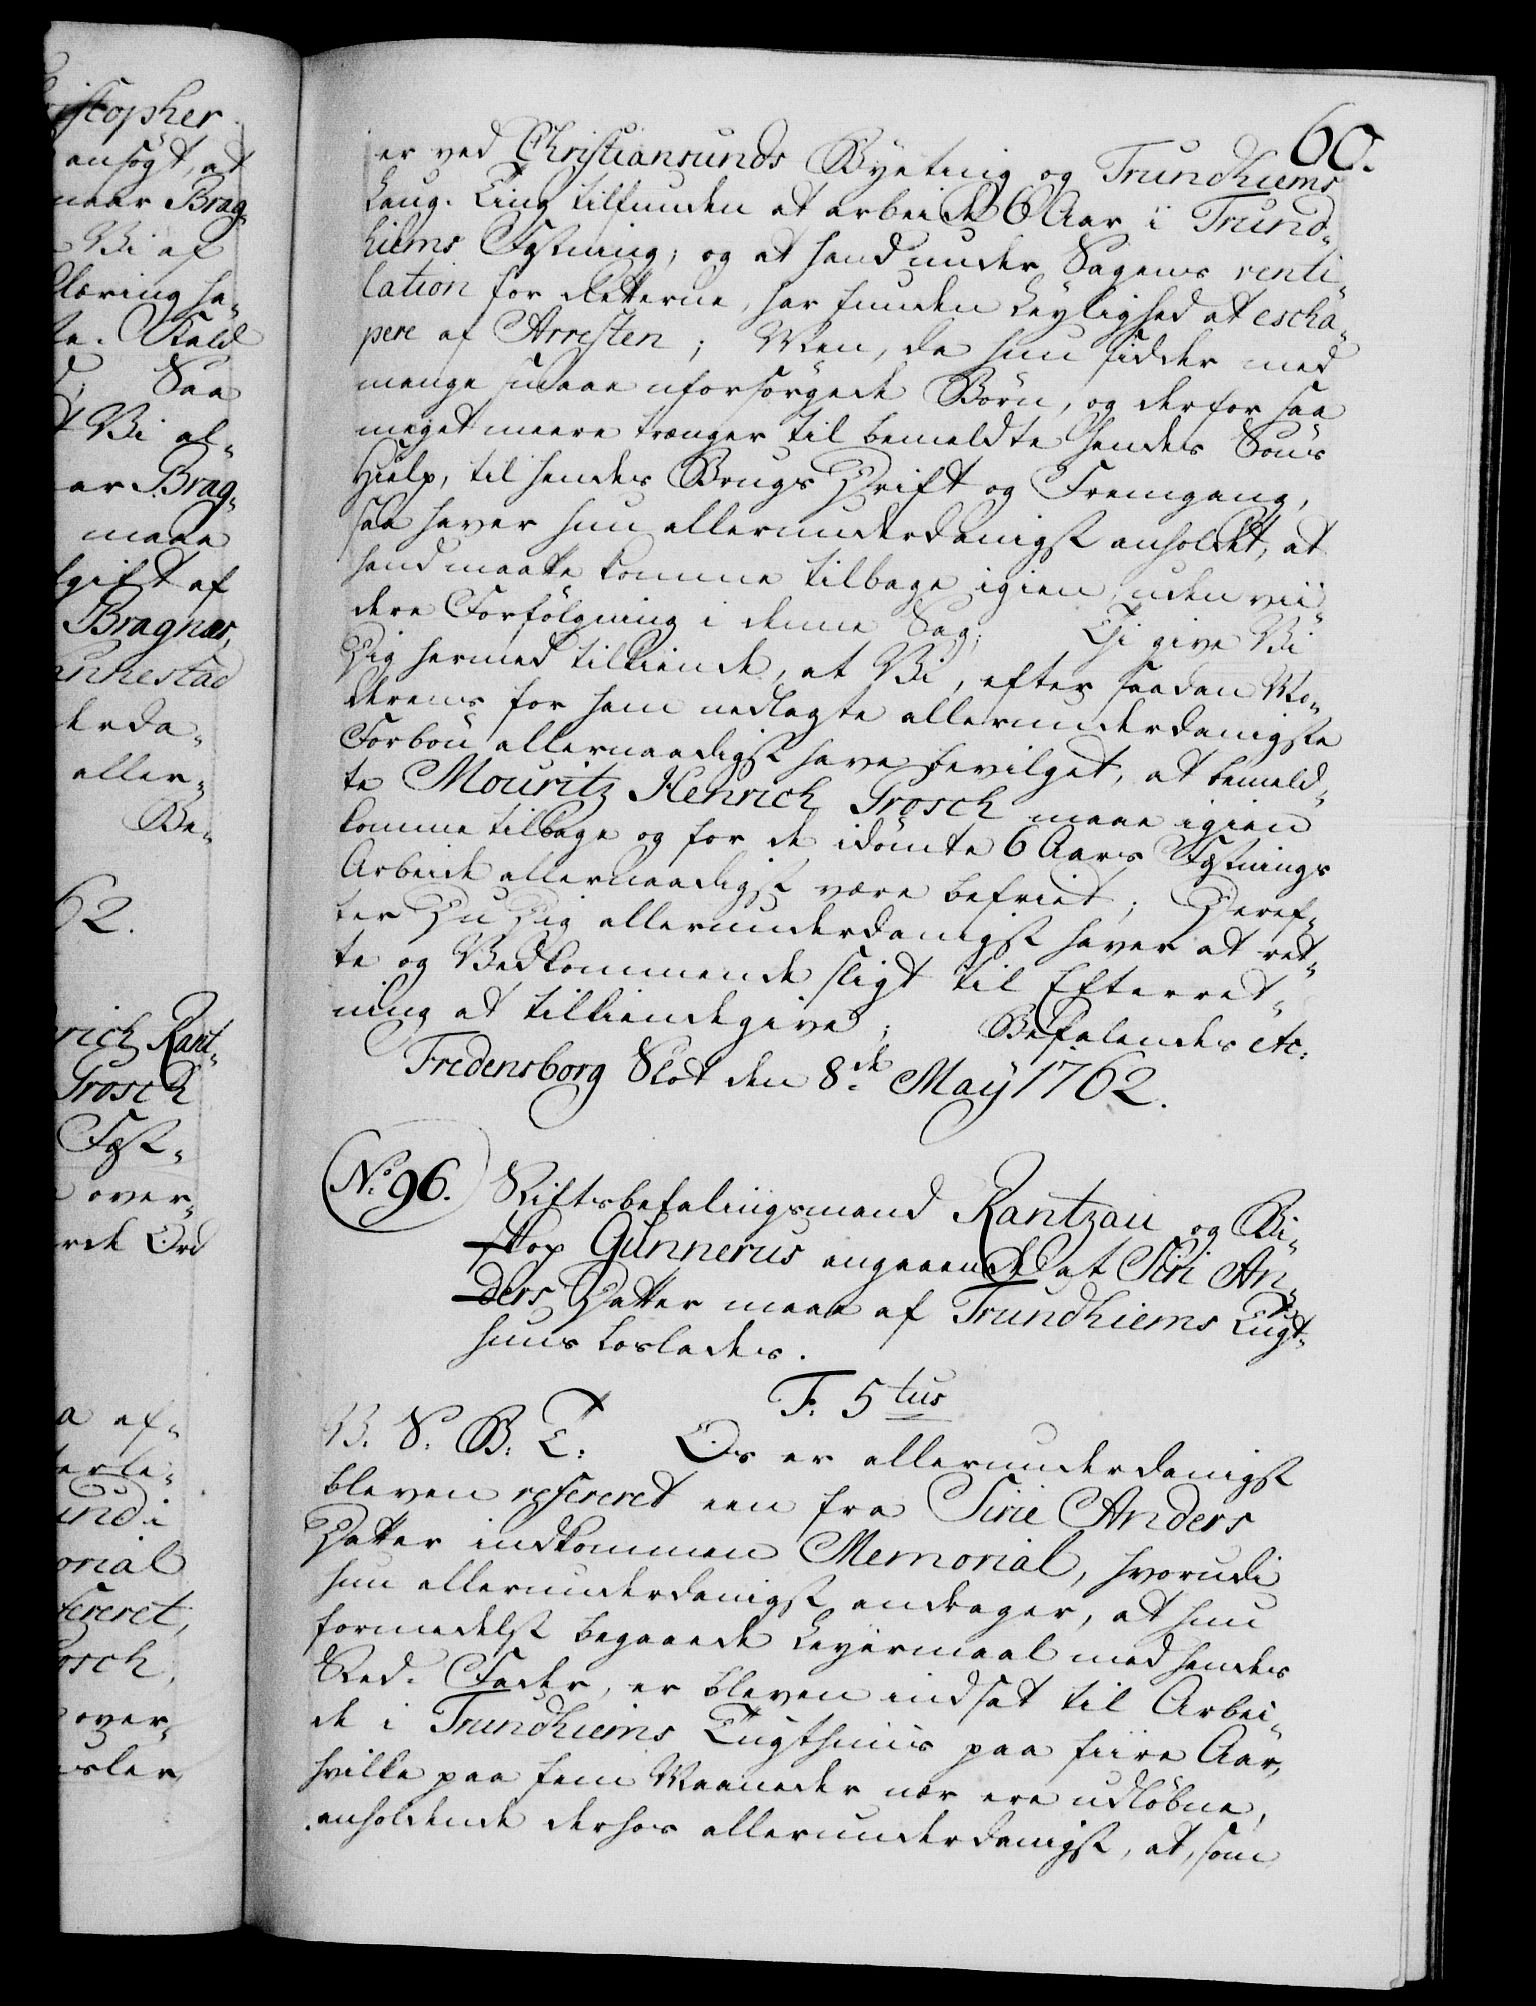 istopher
ansögt, at
naar Brag-
Vi af
læring ha-
te. Kald
Saa
t Vi al-
ar Brag-
maae
lgift af
Bragnæs,
annestad
derda-
aller-
Be-
62.
rich Rant-
Grosch
Fæst-
over-
rde Ord
a ef-
terle-
und i
orial
fereret,
osch,
over-
isler
60.
er ved Christiansunds Byeting og Trundhiems
Laug-Ting tilfunden at arbeide 6 Aar i Trund-
hiems Fæstning; og at hand under Sagens venti-
lation for Retterne, har funden Leylighed at escha-
pere af Arresten; Men, da hun sidder med
mange smaae uforsörgede Börn, og derfor saa
meget meere trænger til bemeldte hendes Söns
Hielp, til hendes Brugs Drift og Fremgang,
saa haver hun allerunderdanigst anholdet, at
hand maatte komme tilbage igien uden vii-
dere Forfölgning i denne Sag; Thi give Vi
Dig hermed tilkiende, at Vi, efter saadan Mo-
derens for ham nedlagte allerunderdanigste
Forbön allernaadigst have bevilget, at bemeld-
te Mouritz Henrich Grosch maae igien
komme tilbage og for de idömte 6 Aars Fæstnings
Arbeide allernaadigst være befriet; Deref-
ter Du Dig allerunderdanigst haver at ret-
te og Vedkommende sligt til Efterret-
ning at tilkiendegive; Befalendes etc.
Fredensborg Slot den 8de May 1762.
No. 96. Stiftsbefalingsmand Rantzau og Bi-
skop Gunnerus angaaende at Siri An-
ders Datter maae af Trundhiems Tugt-
huus loslades.
F. 5tus
V. S. B. T: Os er allerunderdanigst
bleven refereret een fra Sirie Anders
Datter indkommen Memorial, hvorudi
hun allerunderdanigst andrager, at hun
formedelst begaaede Leyermaal med hendes
Sted-Fader, er bleven indsat til Arbei-
de i Trundhiems Tugthuus paa fiire Aar,
hvilke paa fem Maaneder nær ere udlöbne,
anholdende derhos allerunderdanigst, at, som